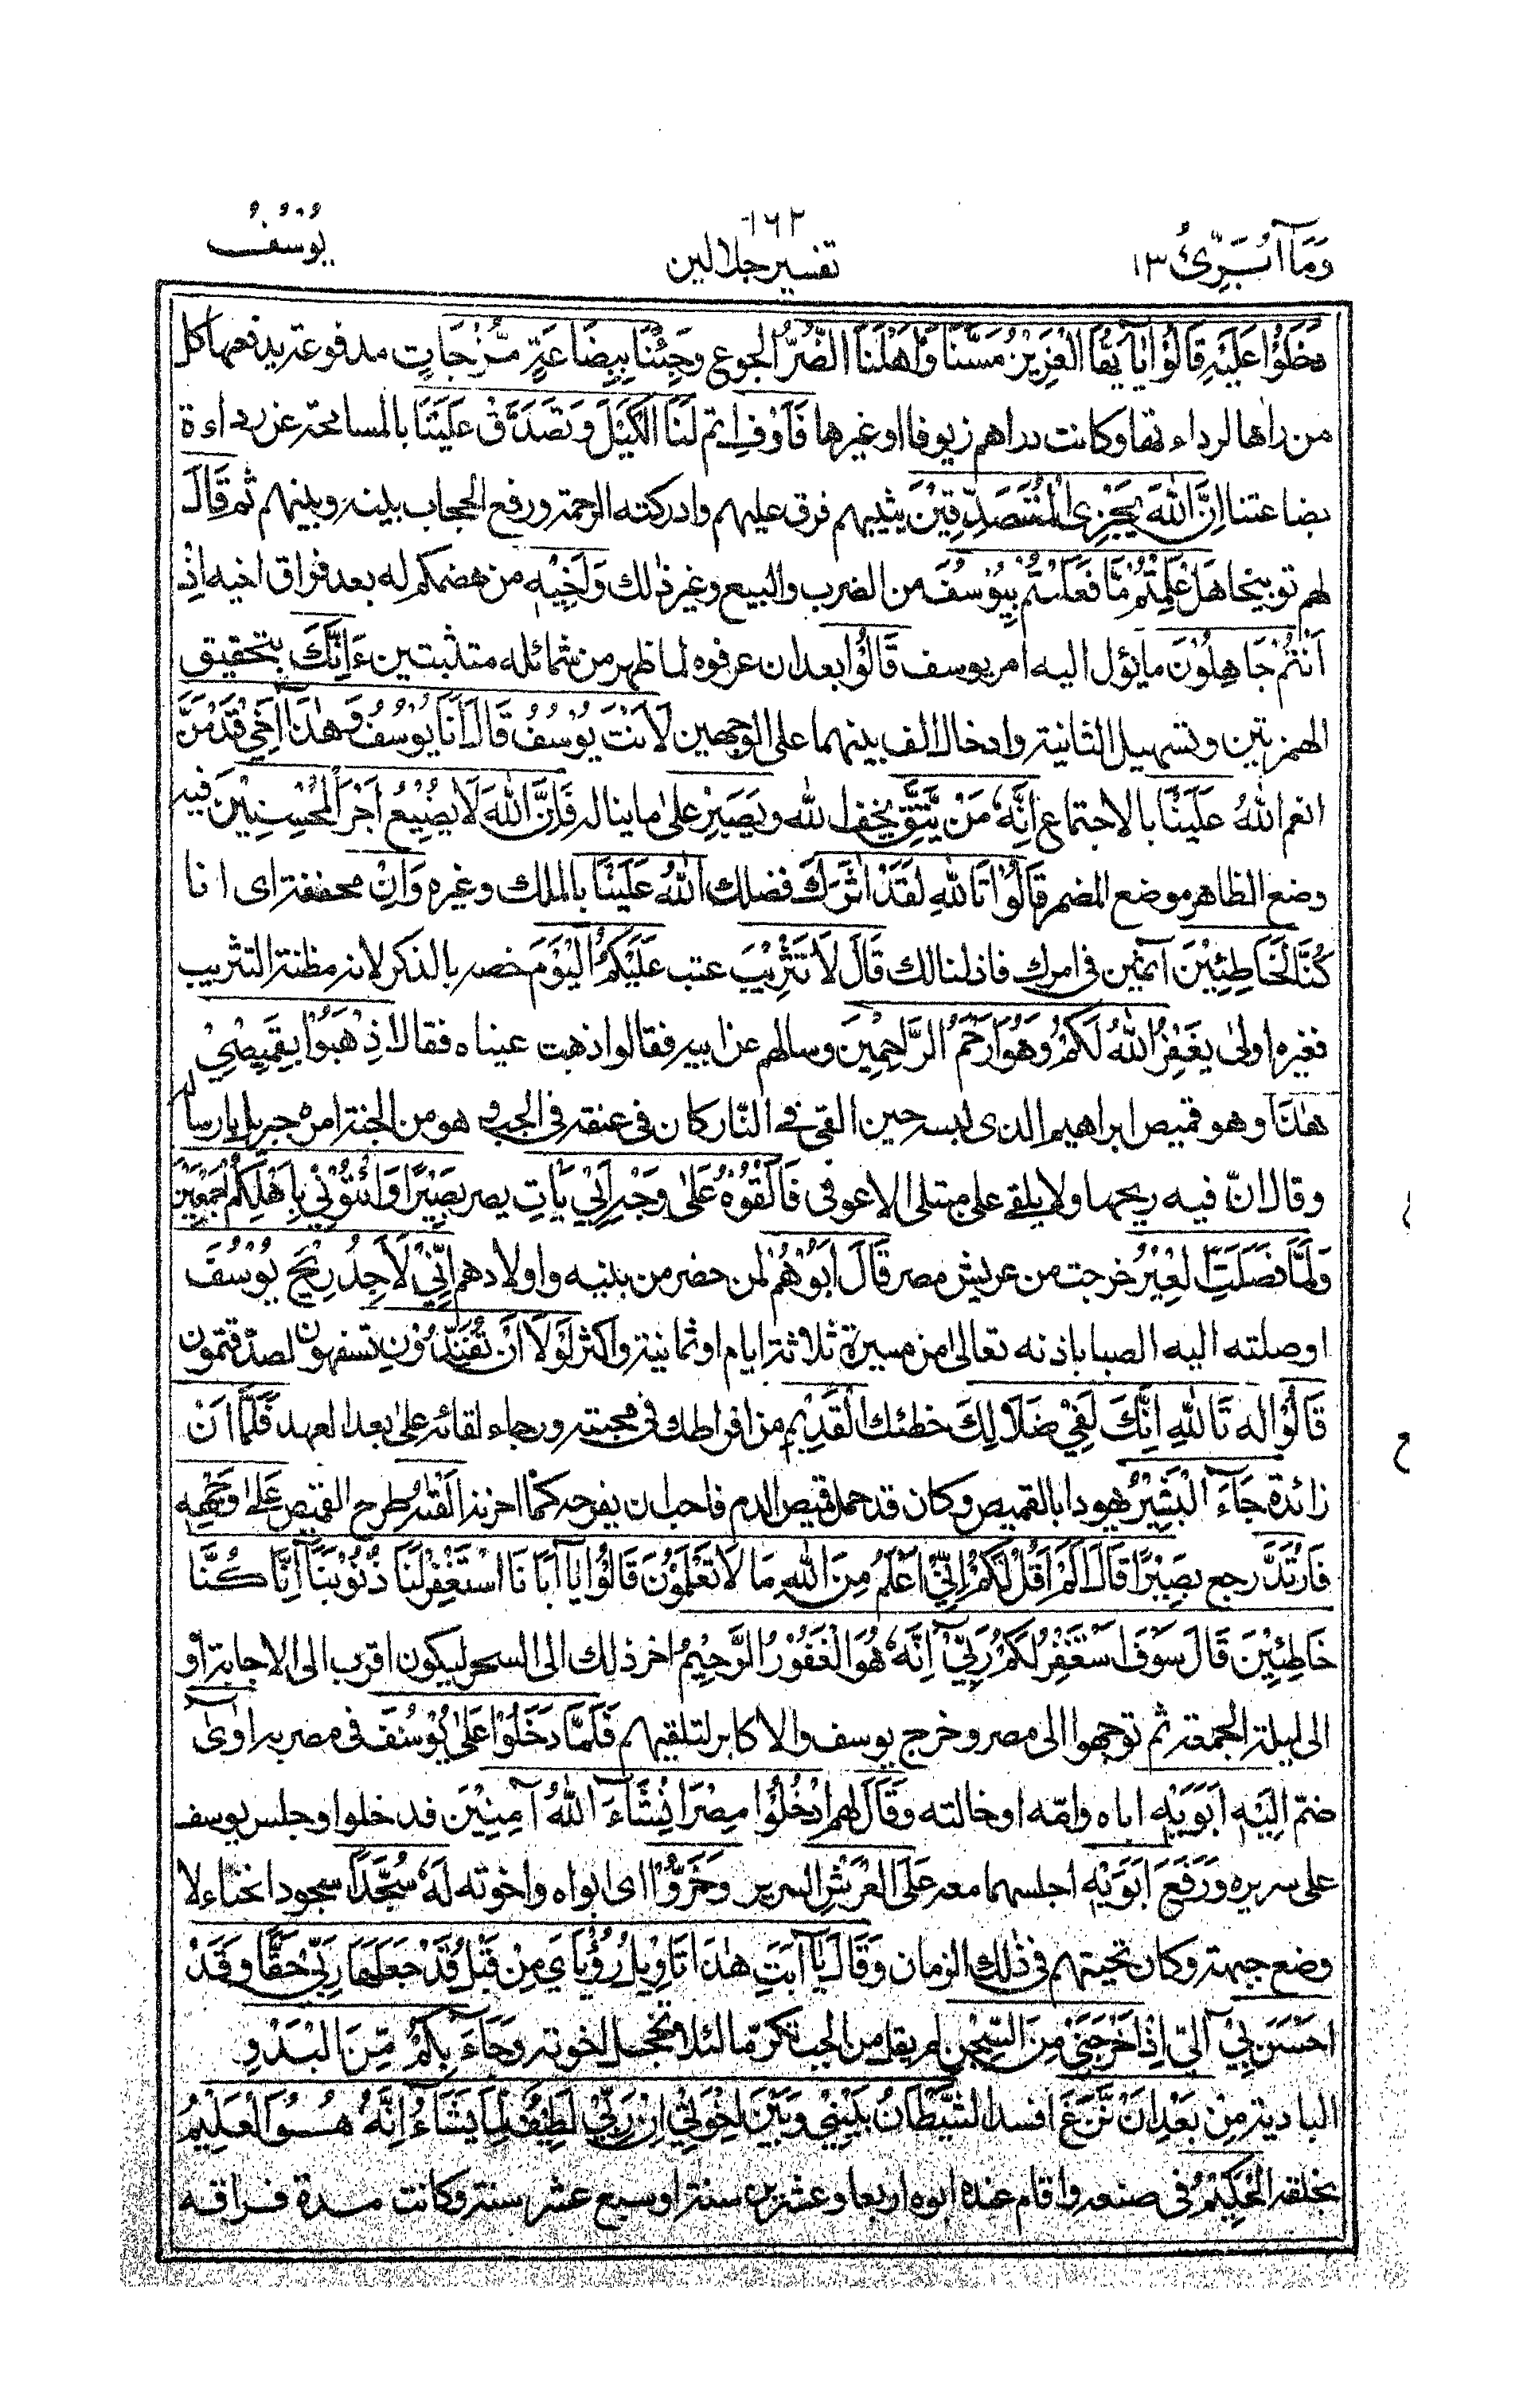 ١٦٢
وَمَآ أُبَرِّئُ ١٣
تفسير جلالين
يُوْسُفُ
دَخَلُوْا عَلَيْهِ قَالُوْا يٰآ يُّهَا الْعَزِيْزُ مَسَّنَا وَاَهْلَنَا الضُّرُّ الجوع وَجِئْنَا بِبِضَاعَةٍ مُّزْجَاتٍ مدفوعة يدفعها كل
من راها لرداء تها وكانت دراهم زيوفا او غيرها فَاَوْفِ اتم لَنَا الْكَيْلَ وَتَصَدَّقْ عَلَيْنَا بالمسامحة عن رداءة
بضاعتنا اِنَّ اللهَ يَجْزِى الْمُتَصَدِّقِيْنَ يثيبهم فرق عليهم وادركته الرحمة ورفع الحجاب بينه وبينهم ثم قَالَ
لهم توبيخا هَلْ عَلِمْتُمْ مَّا فَعَلْتُمْ بِيُوْسُفَ من الضرب والبيع وغير ذٰلك وَاَخِيْهِ من هضمكم له بعد فراق اخيه اِذْ
اَنْتُمْ جَاهِلُوْنَ ما يؤل اليه امر يوسف قَالُوْا بعد ان عرفوه لما ظهر من شمائله متثبتين ءَاِنَّكَ بتحقيق
الهمزتين وتسهيل الثانية وادخال الف بينهما على الوجهين لَاَنْتَ يُوْسُفُ قَالَ اَنَا يُوْسُفُ وَهٰذَآ اَخِيْ قَدْ مَنَّ
انعم اللهُ عَلَيْنَا بالاجتماع اِنَّهٗ مَنْ يَّتَّقِ يخف الله وَيَصْبِرْ على ما يناله فَاِنَّ اللهَ لَا يُضِيْعُ اَجْرَ الْمُحْسِنِيْنَ فيه
وضع الظاهر موضع المضمر قَالُوْا تَاللهِ لَقَدْ اٰثَرَكَ فضلك اللهُ عَلَيْنَا بالملك وغيره وَاِنْ مخففة اى انا
كُنَّا لَخَاطِئِيْنَ آثمين فى امرك فاذلنا لك قَالَ لَا تَثْرِيْبَ عتب عَلَيْكُمُ الْيَوْمَ خصه بالذكر لانه مظنة التثريب
فغيره اولى يَغْفِرُ اللهُ لَكُمْ وَهُوَ اَرْحَمُ الرَّاحِمِيْنَ وسالهم عن ابيه فقالوا ذهبت عيناه فقال اِذْهَبُوْا بِقَمِيْصِيْ
هٰذَا وهو قميص ابراهيم الذى لبسه حين القى فى النّار كان فى عنقه فى الجب وهو من الجنة امره جبريل بارساله
وقال انّ فيه ريحها ولا يلقى على مبتلى الا عوفى فَاَلْقُوْهُ عَلٰى وَجْهِ اَبِيْ يَاْتِ يصر بَصِيْرًا وَائْتُوْنِيْ بِاَهْلِكُمْ اَجْمَعِيْنَ
وَلَمَّا فَصَلَتِ الْعِيْرُ خرجت من عريش مصر قَالَ اَبُوْهُمْ لمن حضر من بنيه واولادهم اِنِّيْ لَاَجِدُ رِيْحَ يُوْسُفَ
اوصلته اليه الصبا باذنه تعالى من مسيرة ثلاثة ايام او ثمانية واكثر لَوْلَا اَنْ تُفَنِّدُوْنِ تسفهون لصدقتمون
قَالُوْا له تَاللهِ اِنَّكَ لَفِيْ ضَلَالِكَ خطئك الْقَدِيْمِ من افراطك فى محبته ورجاء لقائه على بعد العهد فَلَمَّا اَنْ
زائدة جَاءَ الْبَشِيْرُ يهودا بالقميص وكان قد حمل قميص الدم فاحب ان يفرحه كما احزنه اَلْقٰهُ طرح القميص عَلٰى وَجْهِهٖ
فَارْتَدَّ رجع بَصِيْرًا قَالَ اَلَمْ اَقُلْ لَّكُمْ اِنِّيْ اَعْلَمُ مِنَ اللهِ مَا لَا تَعْلَمُوْنَ قَالُوْا يٰآ اَبَانَا اسْتَغْفِرْ لَنَا ذُنُوْبَنَا اِنَّا كُنَّا
خَاطِئِيْنَ قَالَ سَوْفَ اَسْتَغْفِرُ لَكُمْ رَبِّيْ اِنَّهٗ هُوَ الْغَفُوْرُ الرَّحِيْمُ اخر ذلك الى السحر ليكون اقرب الى الاجابة او
الى ليلة الجمعة ثم توجهوا الى مصر وخرج يوسف والاكابر لتلقيهم فَلَمَّا دَخَلُوْا عَلٰى يُوْسُفَ فى مضربه اٰوٰىٓ
ضمّ اِلَيْهِ اَبَوَيْهِ اباه وامّه او خالته وَقَالَ لهم ادْخُلُوْا مِصْرَ اِنْ شَآءَ اللهُ آمِنِيْنَ فدخلوا وجلس يوسف
على سريره وَرَفَعَ اَبَوَيْهِ اجلسهما معه عَلَى الْعَرْشِ السرير وَخَرُّوْا اى ابواه واخوته لَهٗ سُجَّدًا سجود انحناء لا
وضع جبهة وكان تحيتهم فى ذٰلك الزمان وَقَالَ يٰآ اَبَتِ هٰذَا تَاْوِيْلُ رُؤْيَايَ مِنْ قَبْلُ قَدْ جَعَلَهَا رَبِّيْ حَقًّا وَقَدْ
اَحْسَنَ بِيْ الىّ اِذْ اَخْرَجَنِيْ مِنَ السِّجْنِ لم يقل من الجب تكرّما لئلا تخجل اخوته وَجَآءَ بِكُمْ مِّنَ الْبَدْوِ
البادية مِنْ بَعْدِ اَنْ نَّزَغَ افسد الشَّيْطَانُ بَيْنِيْ وَبَيْنَ اِخْوَتِيْ اِنَّ رَبِّيْ لَطِيْفٌ لِّمَا يَشَآءُ اِنَّهٗ هُوَ الْعَلِيْمُ
بخلقه الْحَكِيْمُ فى صنعه واقام عنده ابوه اربعا وعشرين سنة او سبع عشر سنة وكانت مدة فراقه